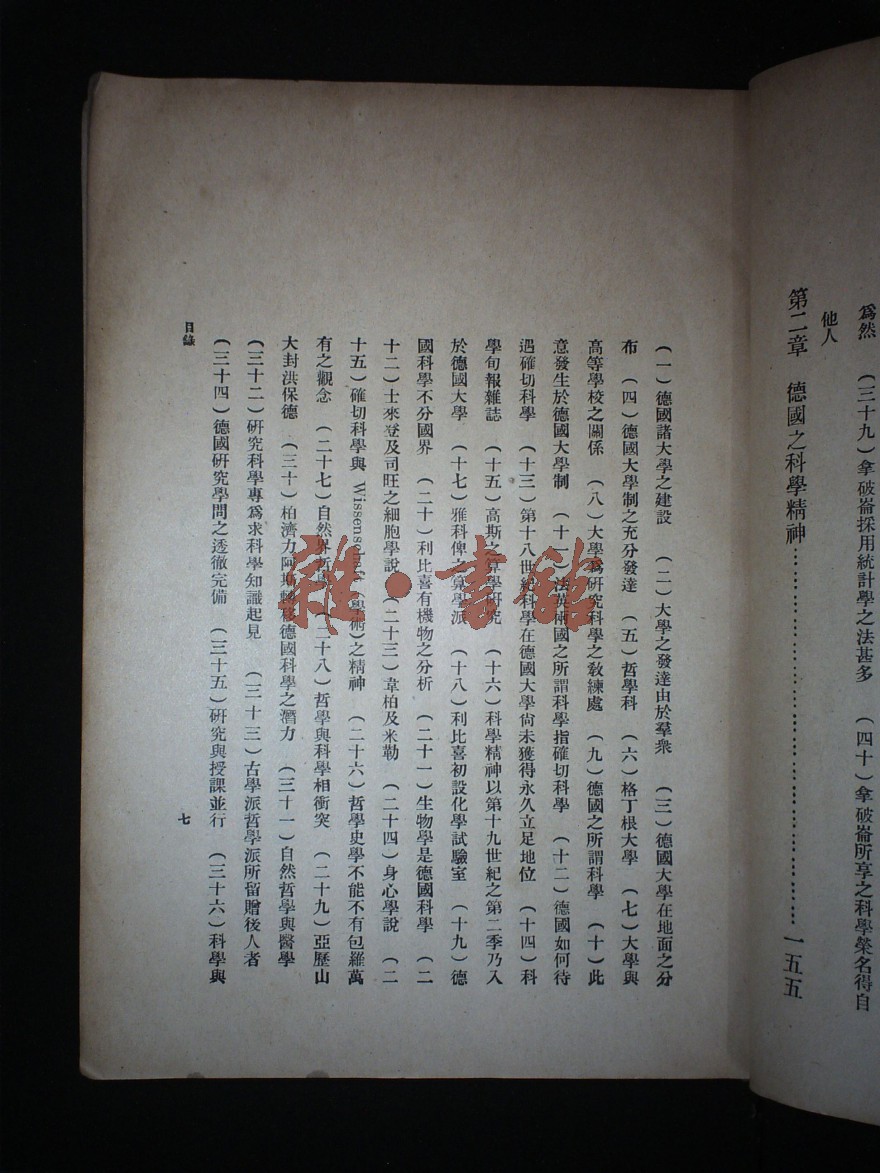 爲然　（三十九）拿破崙採用統計學之法甚多　（四十）拿破崙所享之科學榮名得自
他人
第二章　德國之科學精神……………………………一五五
（一）德國諸大學之建設　（二）大學之發達由於羣衆　（三）德國大學在地面之分
布　（四）德國大學制之充分發達　（五）哲學科　（六）格丁根大學　（七）大學與
高等學校之關係　（八）大學爲研究科學之敎練處　（九）德國之所謂科學　（十）此
意發生於德國大學制　（十一）法英兩國之所謂科學指確切科學　（十二）德國如何待
遇確切科學　（十三）第十八世紀科學在德國大學尙未獲得永久立足地位　（十四）科
學旬報雜誌　（十五）高斯之算學研究　（十六）科學精神以第十九世紀之第二季乃入
於德國大學　（十七）雅科俾之算學派　（十八）利比喜初設化學試驗室　（十九）德
國科學不分國界　（二十）利比喜有機物之分析　（二十一）生物學是德國科學　（二
十二）士來登及司旺之細胞學說　（二十三）韋柏及米勒　（二十四）身心學說　（二
十五）確切科學與 （學術）之精神　（二十六）哲學史學不能不有包羅萬
有之觀念　（二十七）自然界哲學　（二十八）哲學與科學相衝突　（二十九）亞歷山
大封洪保德　（三十）柏濟力阿斯轉移德國科學之潛力　（三十一）自然哲學與醫學
（三十二）研究科學專爲求科學知識起見　（三十三）古學派哲學派所留贈後人者
（三十四）德國研究學問之透徹完備　（三十五）研究與授課並行　（三十六）科學與
目錄
七
雜·書館